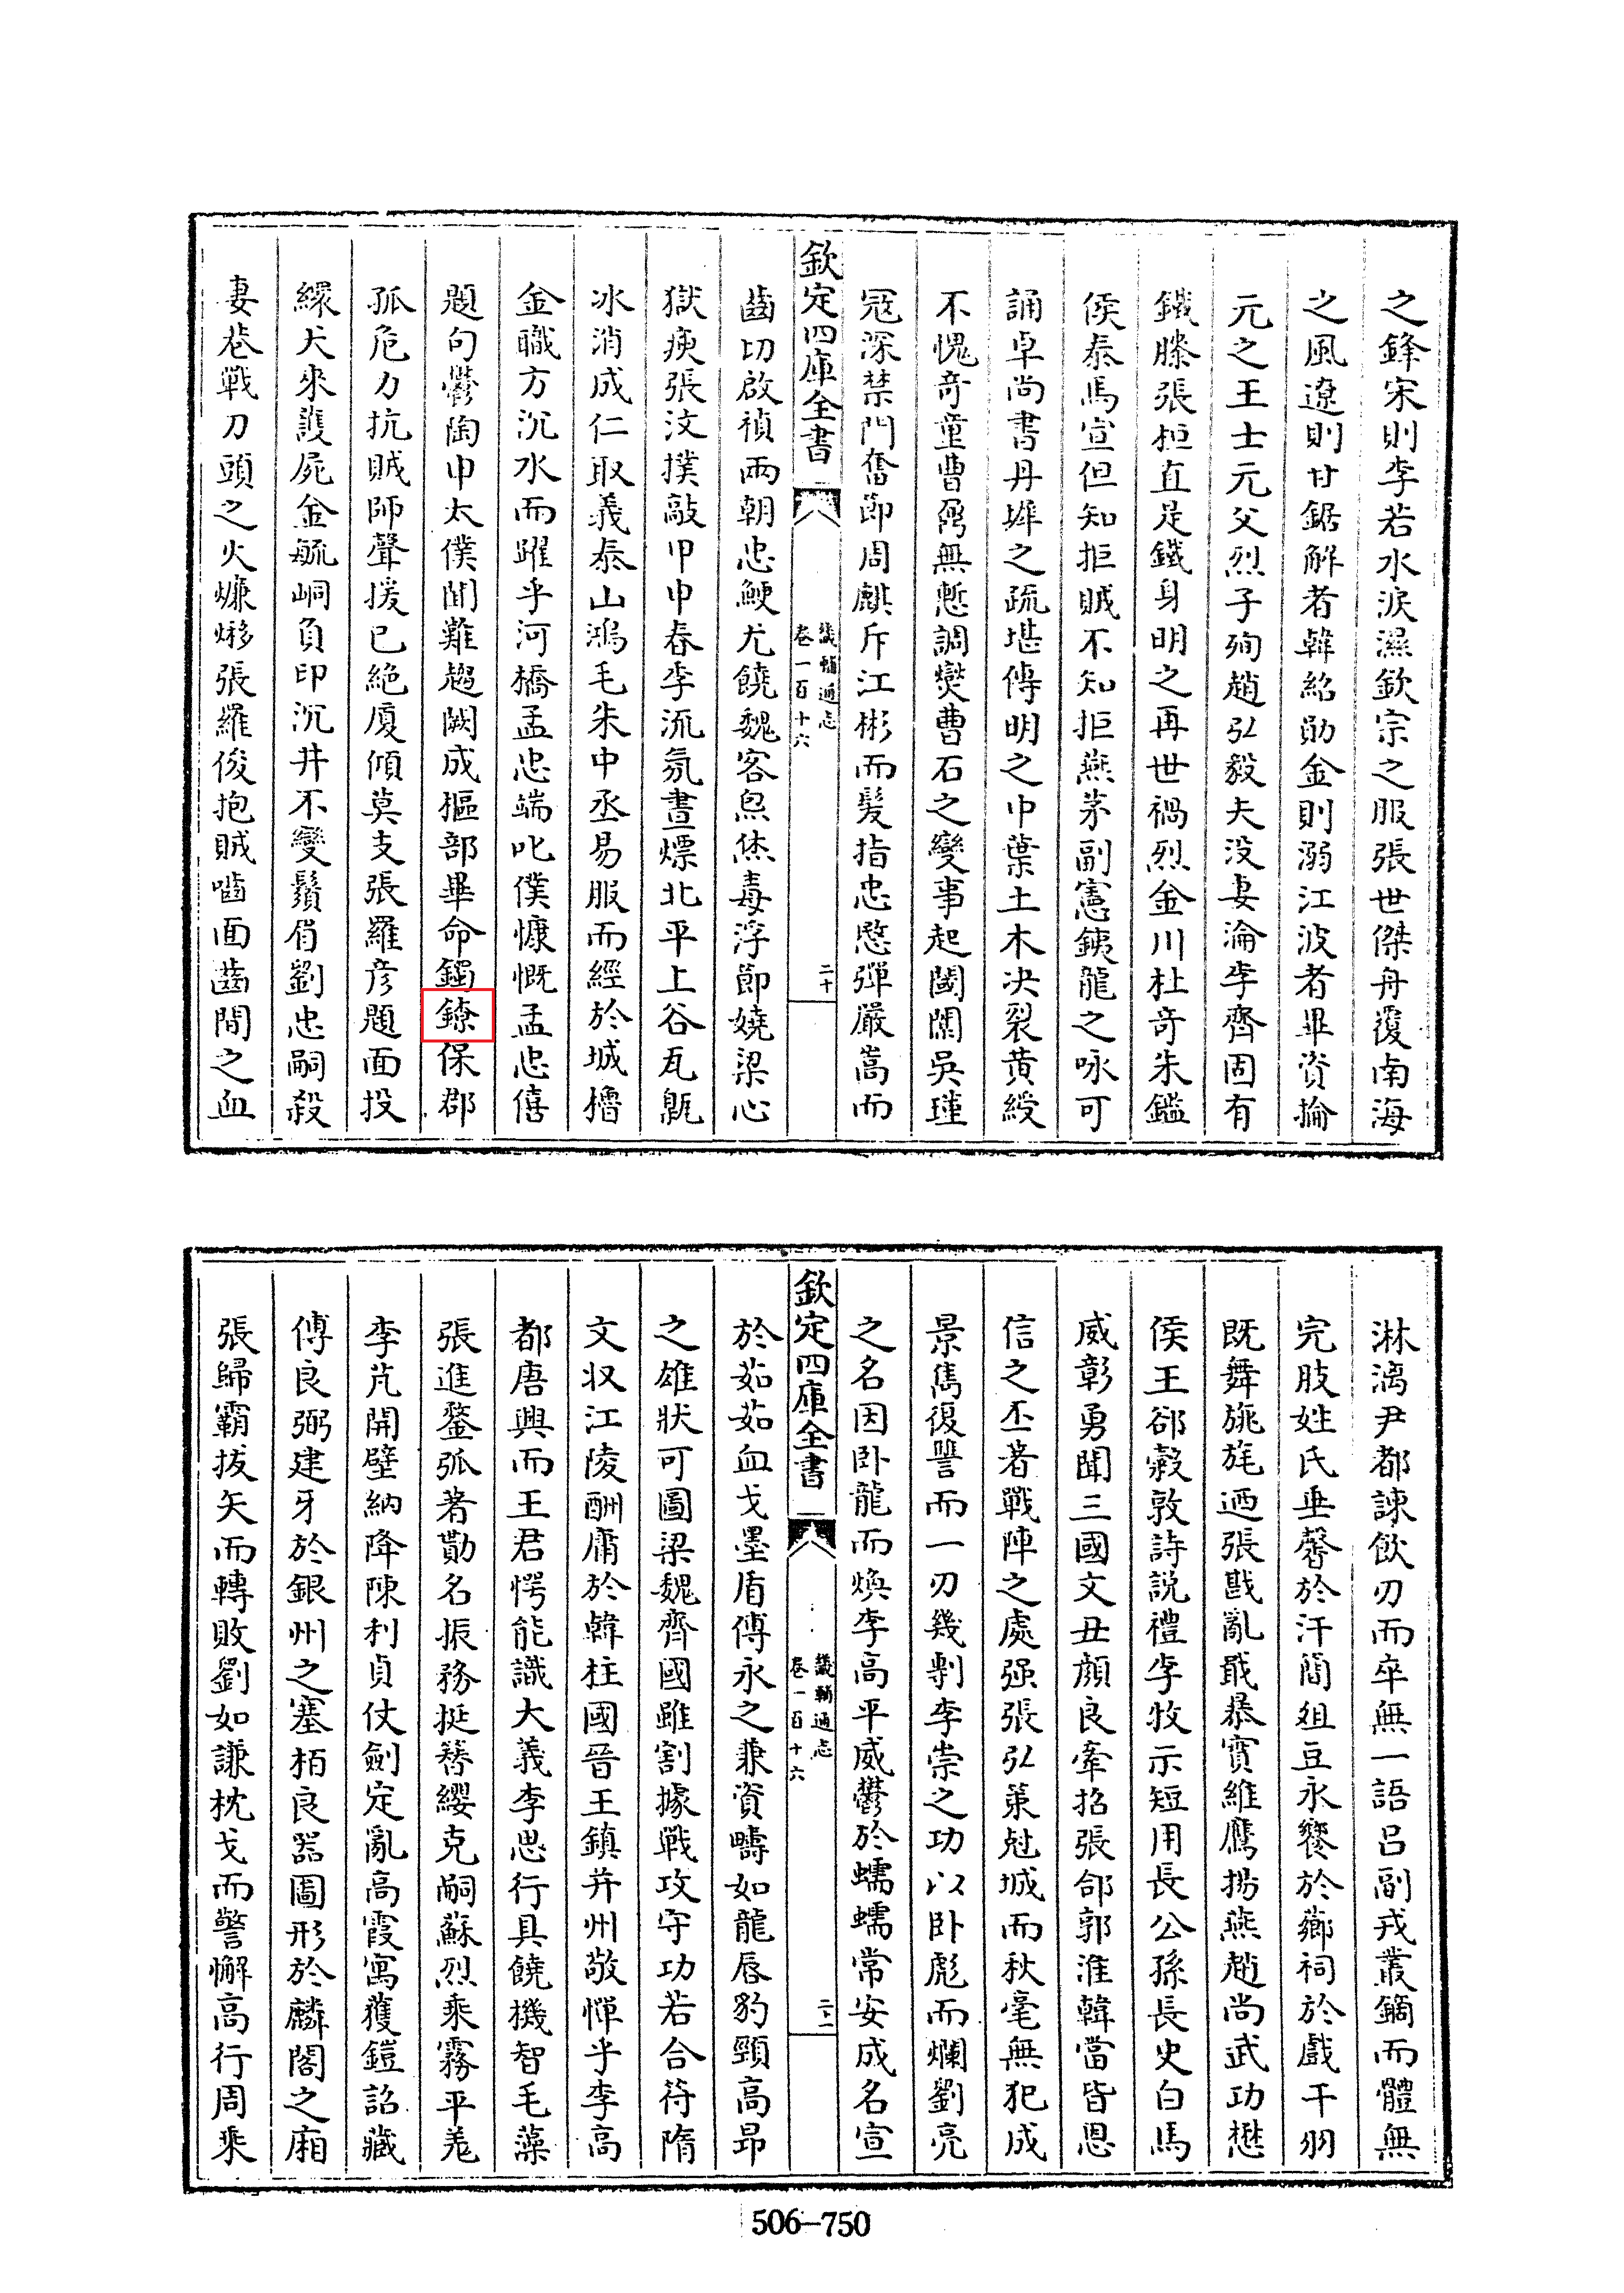 之鋒宋則李若水淚濕欽宗之服張世傑舟覆南海
之風遼則甘鋸解者韓紹勛金則溺江波者畢資倫
元之王士元父烈子殉趙弘毅夫没妻淪李齊固有
鐵膝張拒直是鐵身明之再世禍烈金川杜奇朱鑑
侯泰馬宣但知拒賊不知拒燕茅副憲銕龍之咏可
誦卓尚書丹墀之疏堪傳明之中葉土木决裂黄綬
不愧竒童曹鼐無慙調爕曹石之變事起閫闑吳瑾
冦深禁門奮節周麒斥江彬而髮指忠愍彈嚴嵩而
欽定四庫全書
畿輔通志
卷一百十六
二十
齒切啟禎兩朝忠鯁尤饒魏客炰烋毒浮節嬈梁心
獄㾱張汶撲敲甲申春李流氛晝熛北平上谷瓦甈
冰消成仁取義泰山鴻毛朱中丞易服而經於城櫓
金職方沉水而躍乎河橋孟忠端叱僕慷慨孟忠僖
題句鬱陶申太僕聞難趨闕成樞部畢命鐲鐐保郡
孤危力抗賊師聲援已絶厦傾莫支張羅彦題面投
繯犬來護屍金毓峒負印沉井不變鬚眉劉忠嗣殺
妻巷戰刀頭之火熑㶴張羅俊抱賊嚙面齒間之血
淋漓尹都諫飲刃而卒無一語吕副戎叢鏑而體無
完肢姓氏垂馨於汗簡俎豆永饗於鄉祠於戲干羽
既舞旐旄迺張戡亂戢暴實維鷹揚燕趙尚武功懋
侯王郤縠敦詩説禮李牧示短用長公孫長史白馬
威彰勇聞三國文丑顔良牽招張郃郭淮韓當皆恩
信之丕著戰陣之處强張弘策尅城而秋毫無犯成
景雋復讐而一刃幾剸李崇之功以卧彪而爛劉亮
之名因卧龍而煥李高平威鬱於蠕蠕常安成名宣
欽定四庫全書
畿輔通志
卷一百十六
二十一
於茹茹血戈墨盾傅永之兼資疇如龍唇豹頸高昂
之雄狀可圖梁魏齊國雖割據戰攻守功若合符隋
文収江陵酬庸於韓柱國晉王鎮并州敬憚乎李高
都唐興而王君愕能識大義李思行具饒機智毛藻
張進蝥弧著勛名振務挺簪纓克嗣蘇烈乘霧平羗
李芃開壁納降陳利貞仗劍定亂高霞寓獲鎧詔藏
傅良弼建牙於銀州之塞栢良器圖形於麟閣之廂
張歸霸拔矢而轉敗劉如謙枕戈而警懈高行周乘
506-750